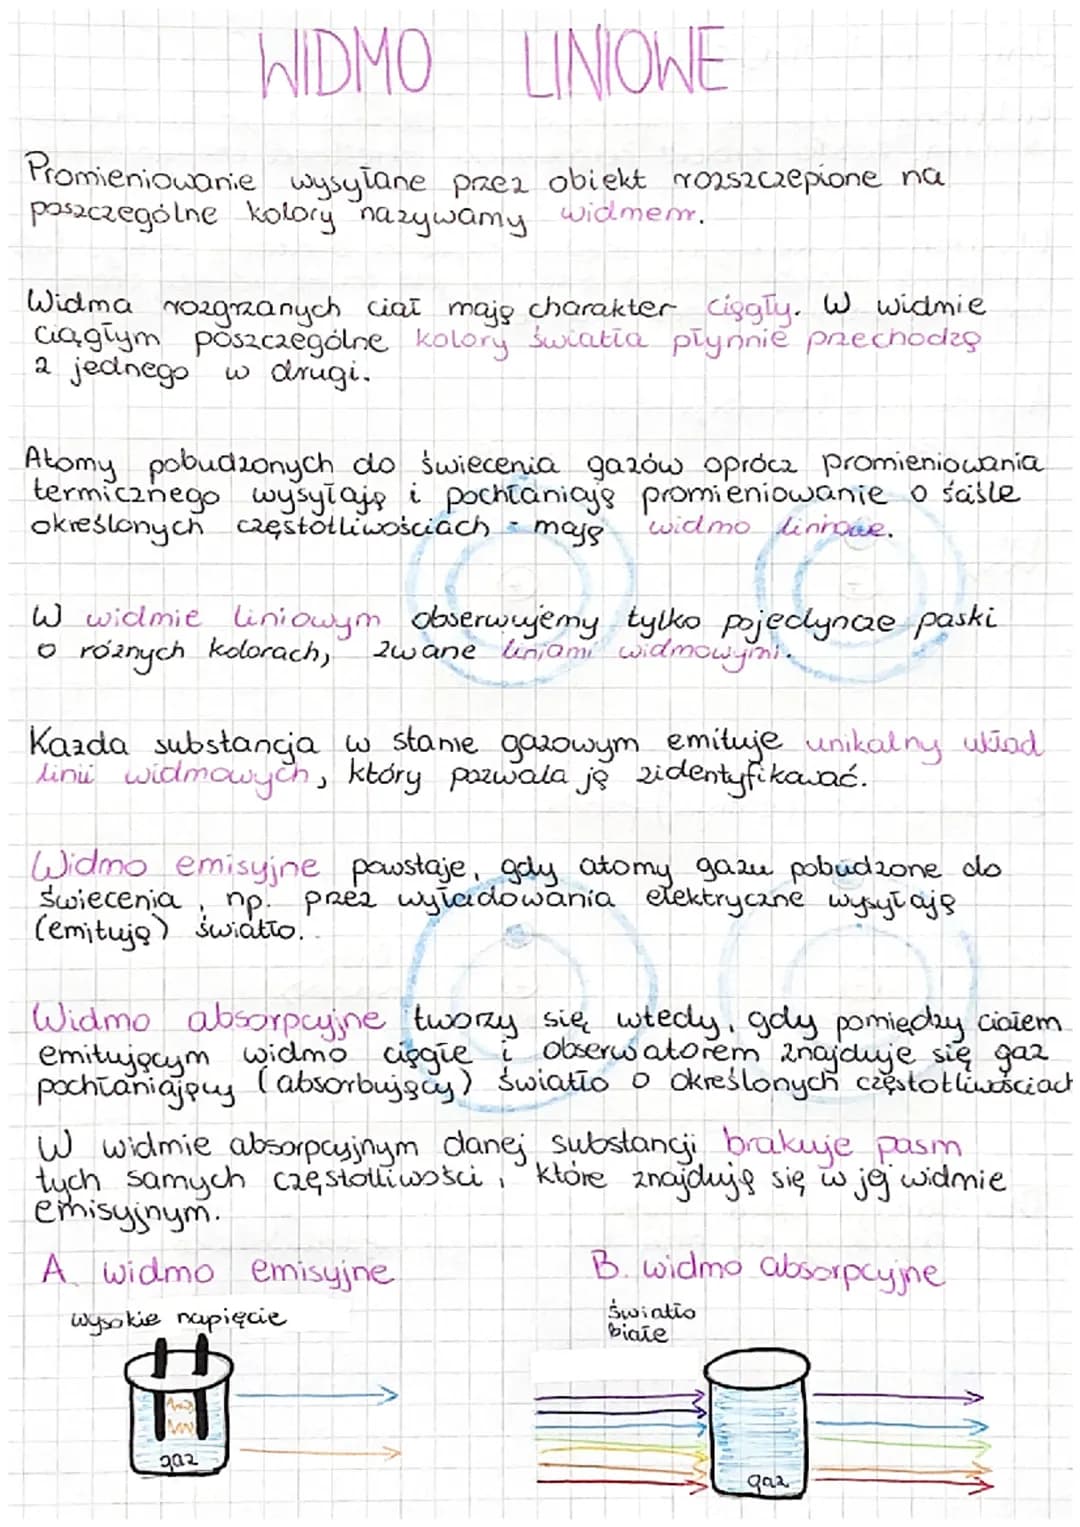 WIDMO LINIOWE
Promieniowanie wysyłane przez obiekt rozszczepione na
poszczególne kolory nazywamy widmem.
Widma rozgrzanych ciał mają charakter ciągły. W widmie
ciągłym poszczególne kolory światła płynnie przechodzą
z jednego w drugi.
Atomy pobudzonych do świecenia gazów oprócz promieniowania
termicznego wysyłają i pochłaniają promieniowanie o ściśle
określonych częstotliwościach - mają widmo liniowe.
W widmie liniowym obserwujemy tylko pojedyncze paski
o różnych kolorach, zwane liniami widmowymi.
Każda substancja w stanie gazowym emituje unikalny układ
linii widmowych, który pozwala ją zidentyfikować.
Widmo emisyjne powstaje, gdy atomy gazu pobudzone do
świecenia, np. przez wyładowania elektryczne wysyłają
(emitują) światło.
Widmo absorpcyjne tworzy się wtedy, gdy pomiędzy ciałem
emitującym widmo ciągłe i obserwatorem znajduje się gaz
pochłaniający (absorbujący) światło o określonych częstotliwościach
W widmie absorpcyjnym danej substancji brakuje pasm
tych samych częstotliwości, które znajdują się w jej widmie
emisyjnym.
A. widmo emisyjne
B. widmo absorpcyjne
wysokie napięcie
światło
białe
gaz
gaz